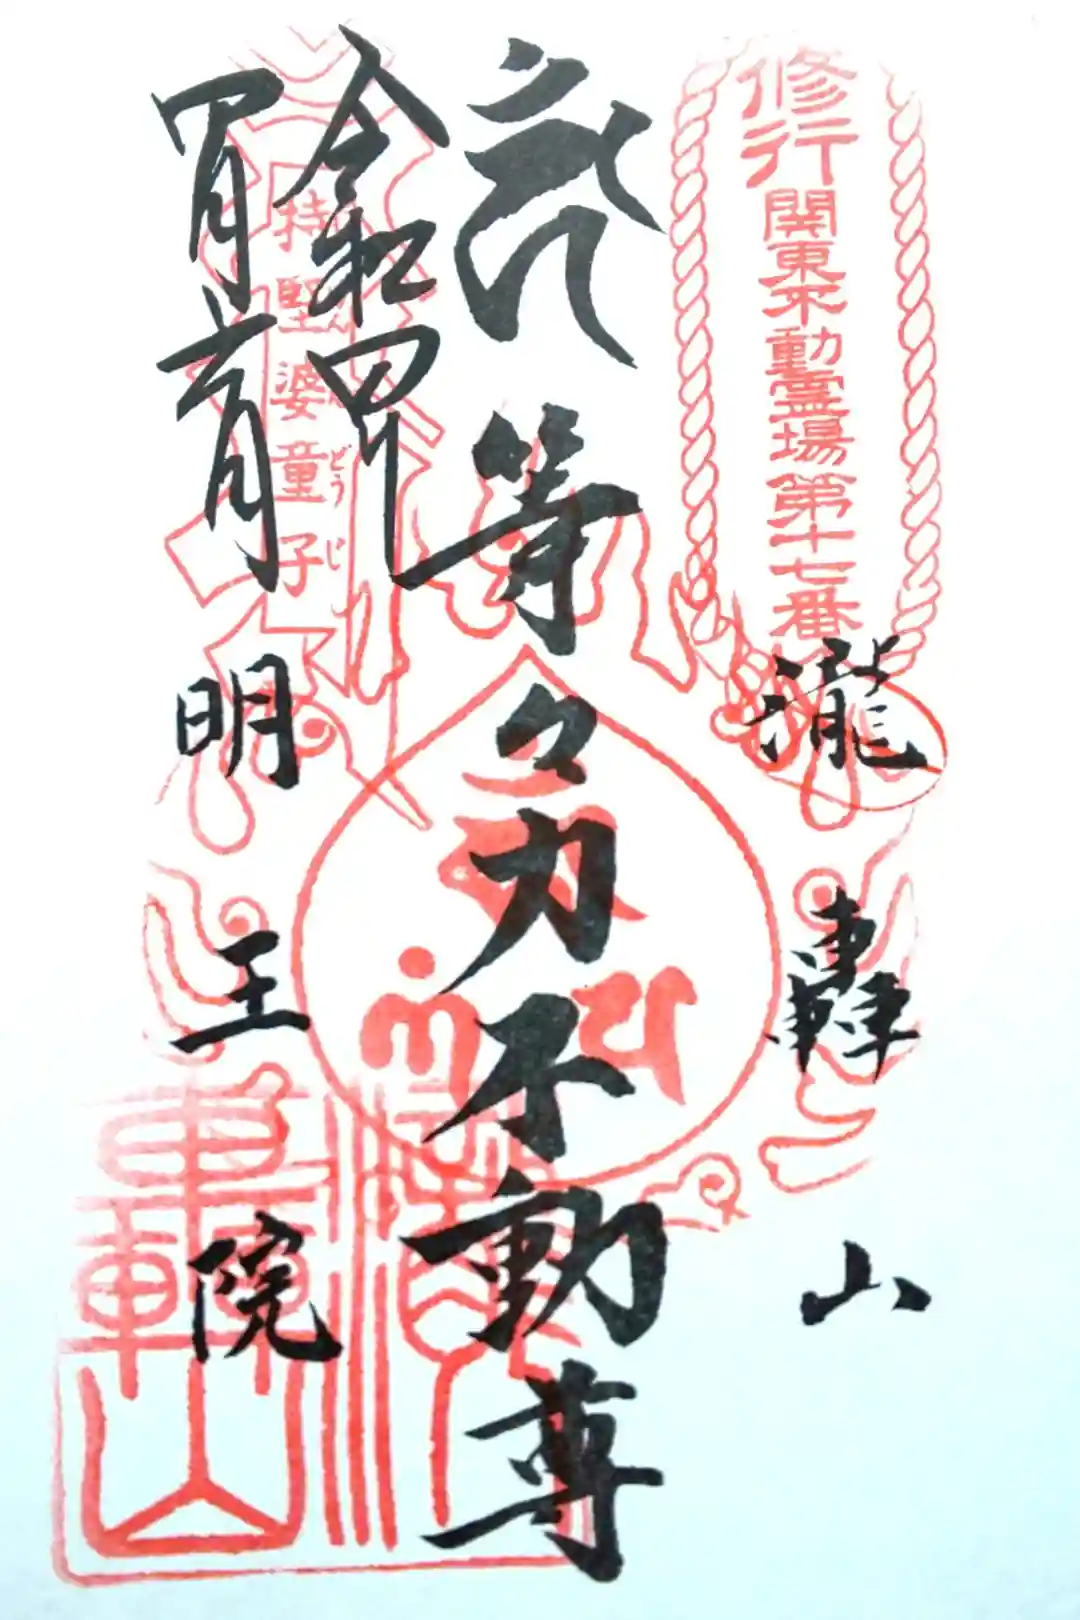 修行関東不動霊場第十七番
瀧轟山
等々力不動尊
令和四年
四月六日
持堅婆童子
どうじ
明王院